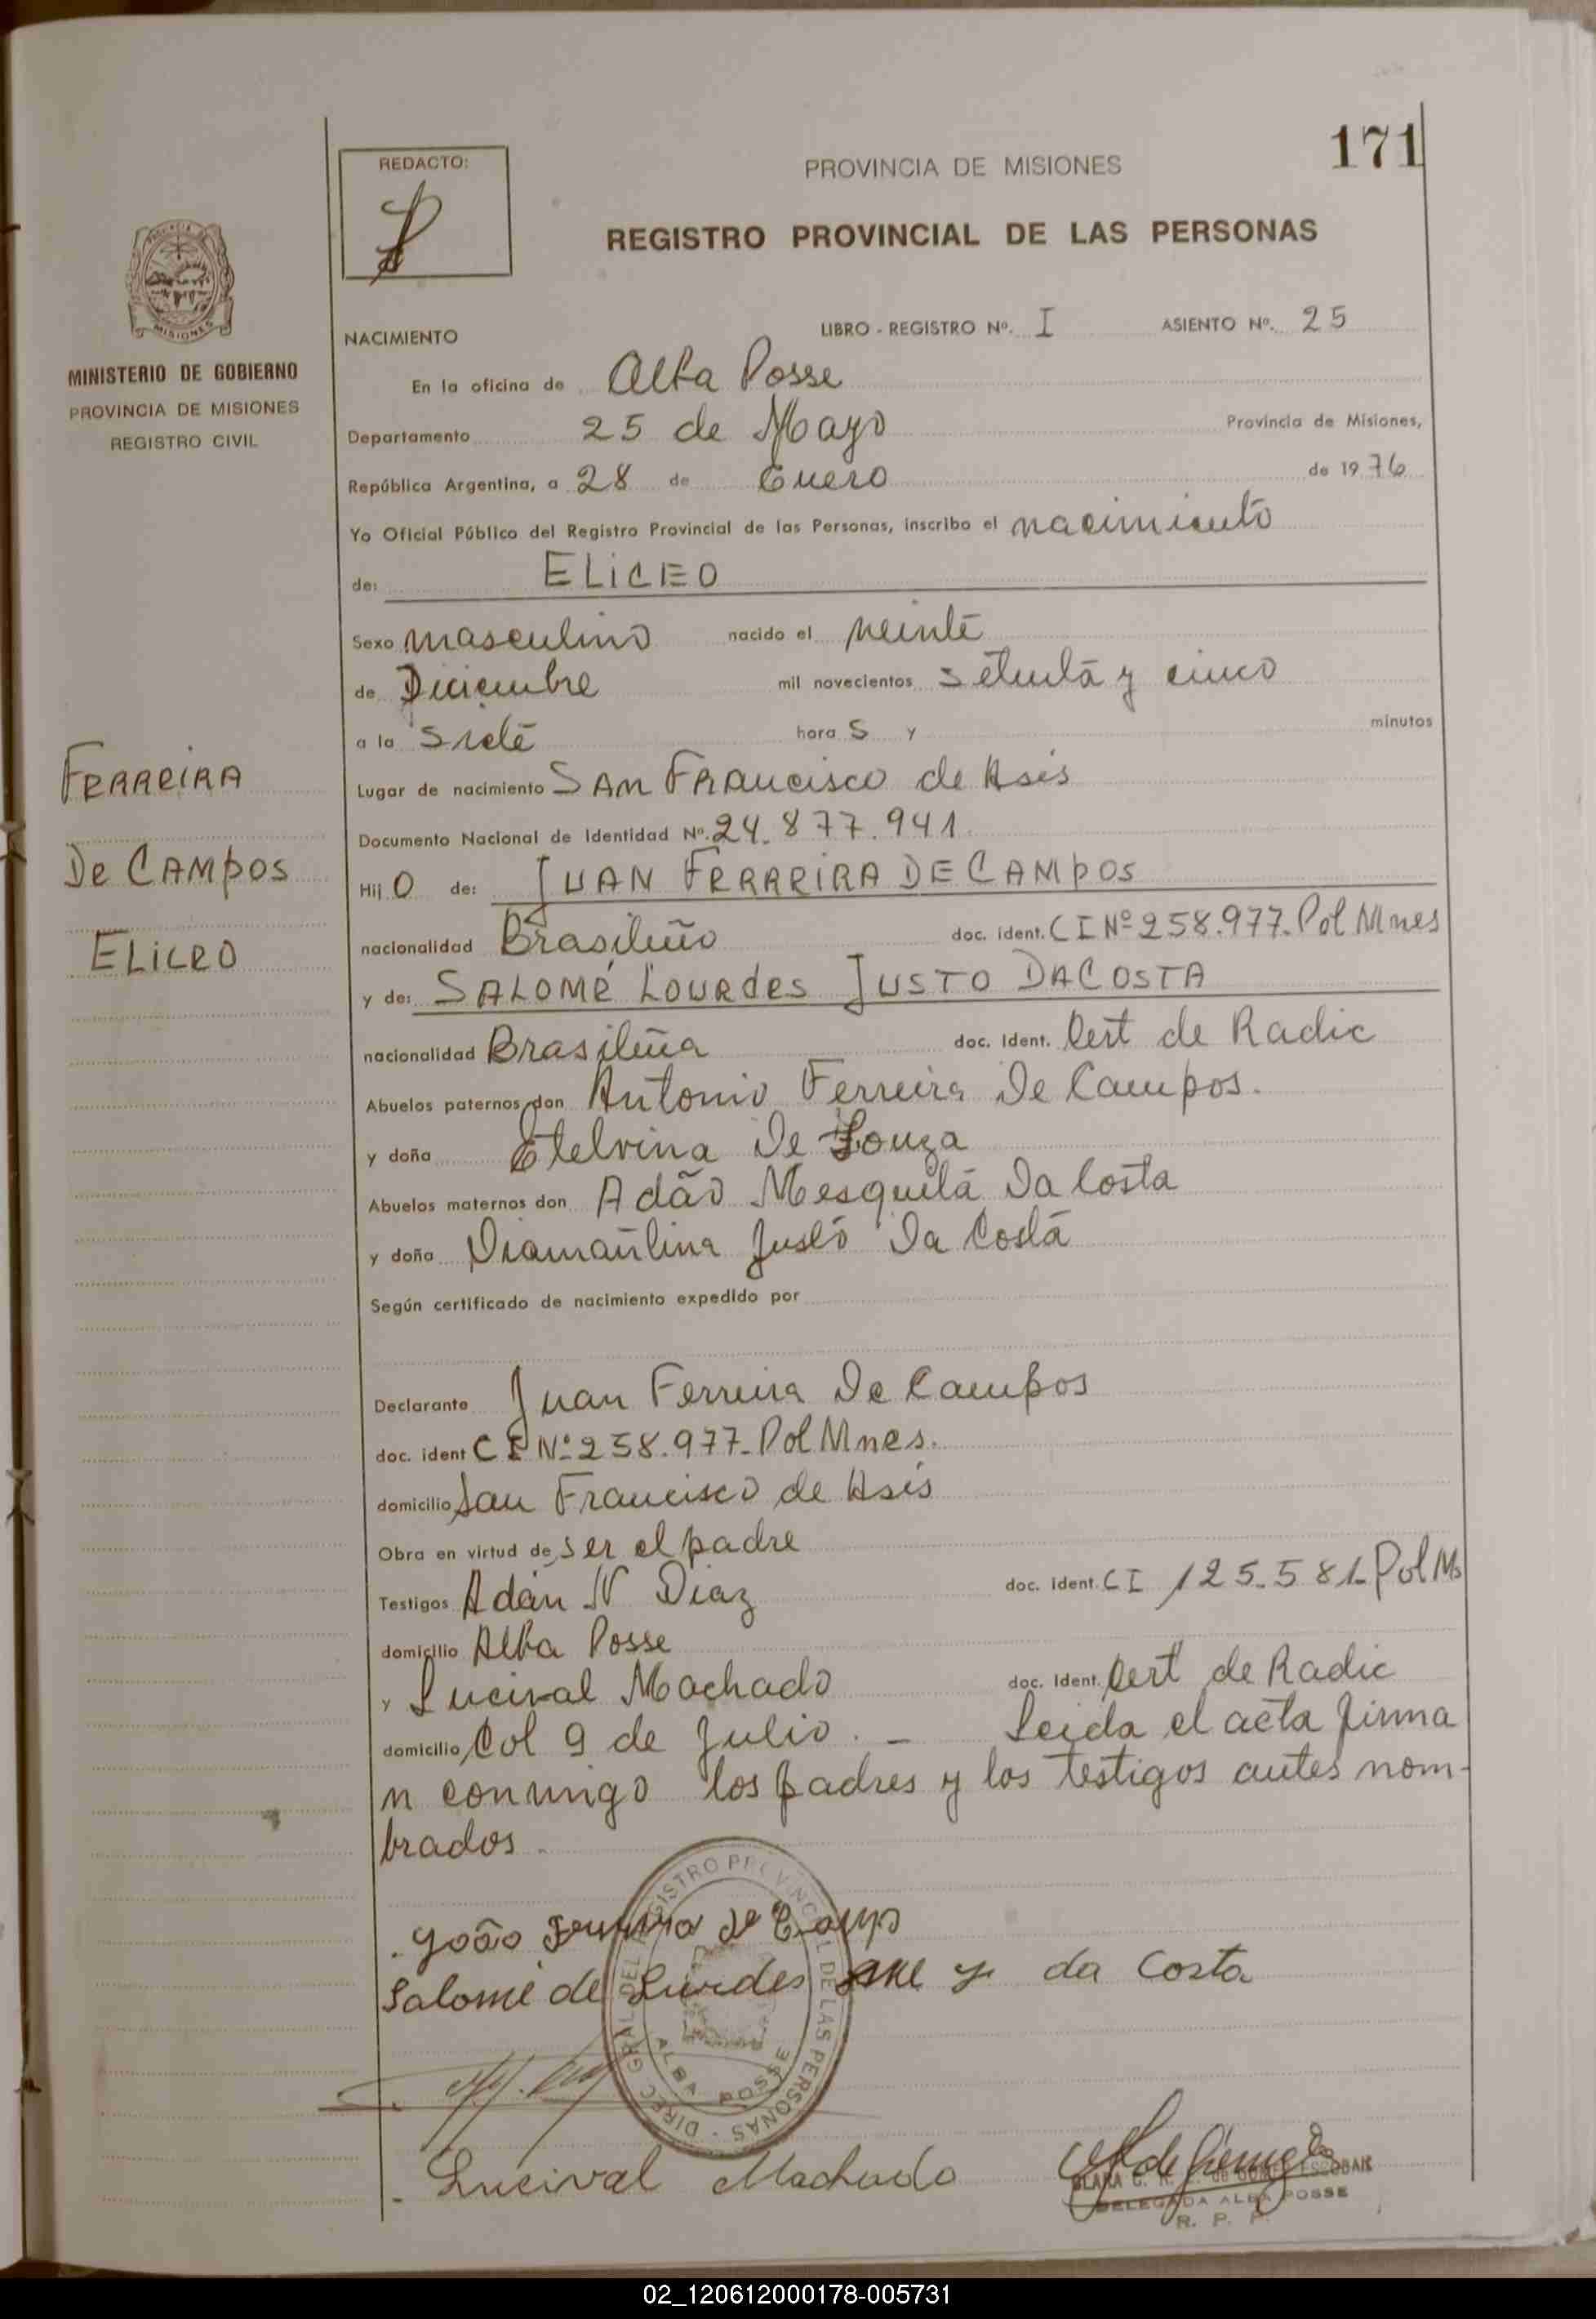 171
REDACTO:
PROVINCIA DE MISIONES
REGISTRO PROVINCIAL DE LAS PERSONAS
MISIONES
MINISTERIO DE GOBIERNO
PROVINCIA DE MISIONES
REGISTRO CIVIL
NACIMIENTO LIBRO - REGISTRO Nº. I ASIENTO Nº. 25
En la oficina de Alba Posse
Departamento 25 de Mayo Provincia de Misiones,
República Argentina, a 28 de Enero de 1976
Yo Oficial Público del Registro Provincial de las Personas, inscribo el nacimiento
de: ELiCEO
Sexo masculino nacido el veinte
de Diciembre mil novecientos setenta y cinco
a la siete hora S y minutos
Lugar de nacimiento SAN FRANcisco de Asis
Documento Nacional de Identidad Nº. 24.877.941
Hij O de: JUAN FERREIRA DE CAMPOS
nacionalidad Brasileño doc. ident. C I Nº 258.977. Pol Mnes
y de: SALOMÉ LOURdes JUSTO DACOSTA
nacionalidad Brasileña doc. Ident. Cert de Radic
Abuelos paternos don Antonio Ferreira De Campos.
y doña Etelvina De Souza
Abuelos maternos don Adão Mesquita Da Costa
y doña Diamantina Justo Da Costa
Según certificado de nacimiento expedido por
Declarante Juan Ferreira De Campos
doc. ident C I Nº 258.977- Pol Mnes.
domicilio San Francisco de Asis
Obra en virtud de ser el padre
Testigos Adán N Diaz doc. Ident. C I 125.581- Pol Ms
domicilio Alba Posse
y Lucival Machado doc. Ident. Cert de Radic
domicilio Col 9 de Julio. - Leida el acta firma
n conmigo los padres y los testigos antes nom-
brados.
FERREIRA
De CAMPOS
ELICEO
João Ferreira de Camps
Salomé de Lurdes da Costa
DIREC GRAL DEL REGISTRO PROVINCIAL DE LAS PERSONAS -
ALBA POSSE
Lucival Machado
ESCOBAR
DELEGADA ALBA POSSE
R. P. P.
02_120612000178-005731